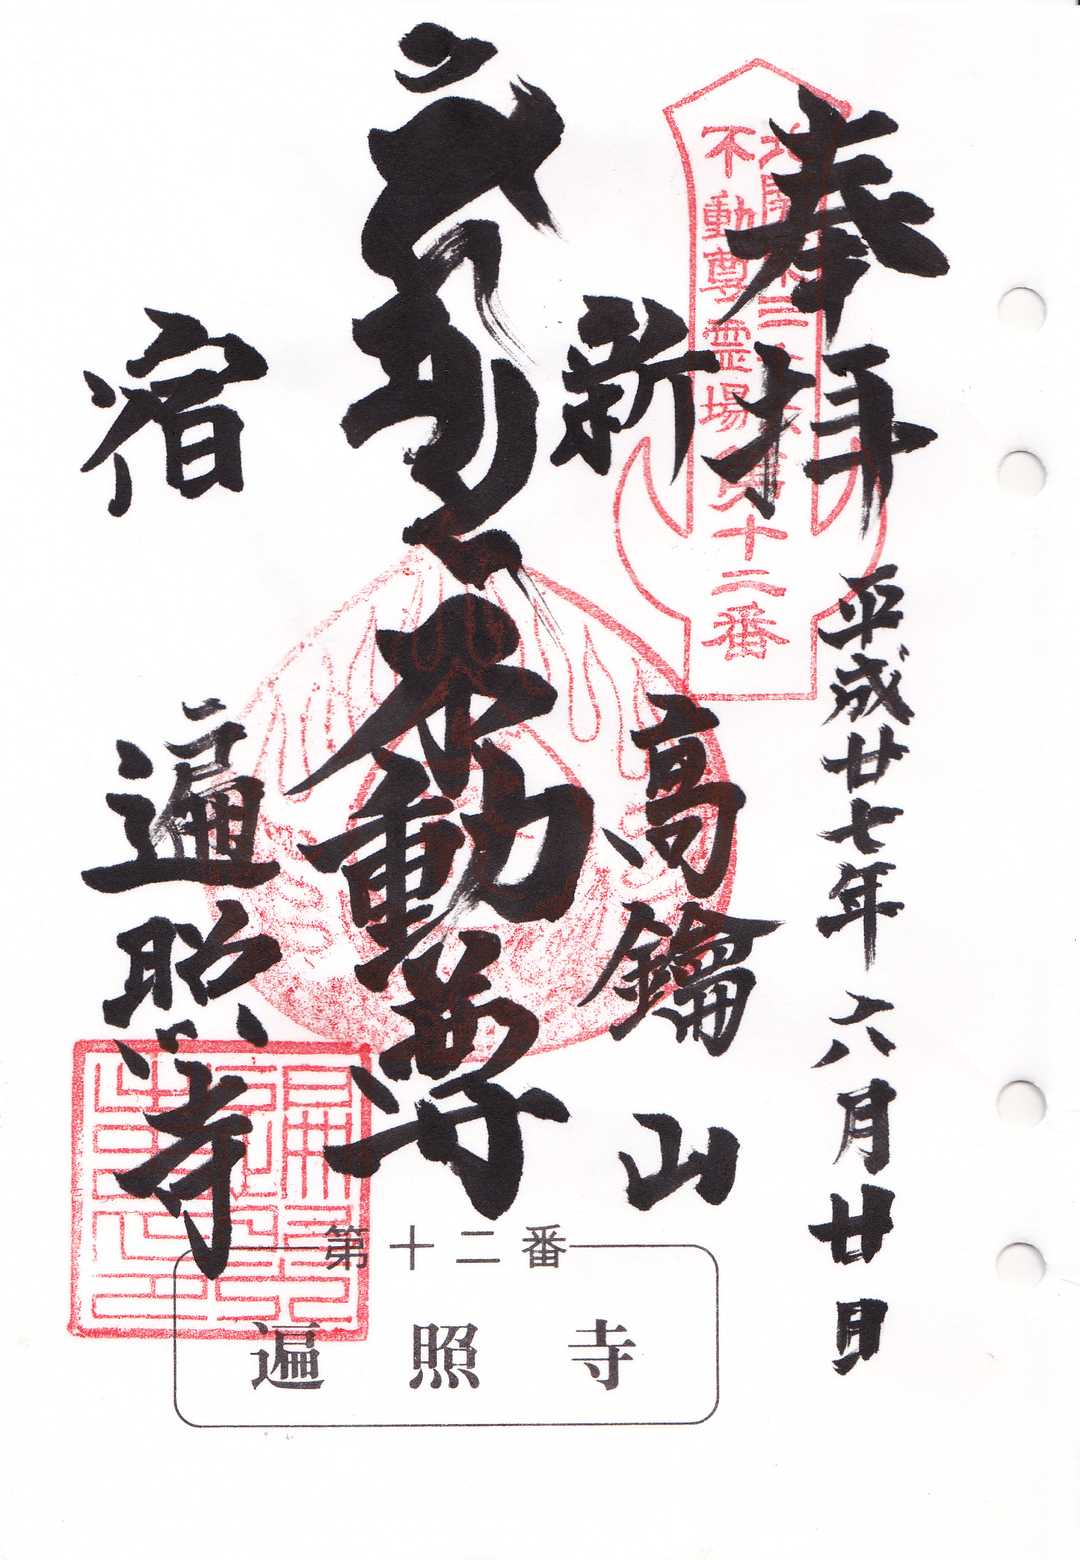 奉拝
平成廿七年六月廿日
不動尊霊場第十二番
新
高鑰山
不動尊
宿
遍照寺
第十二番
遍照寺